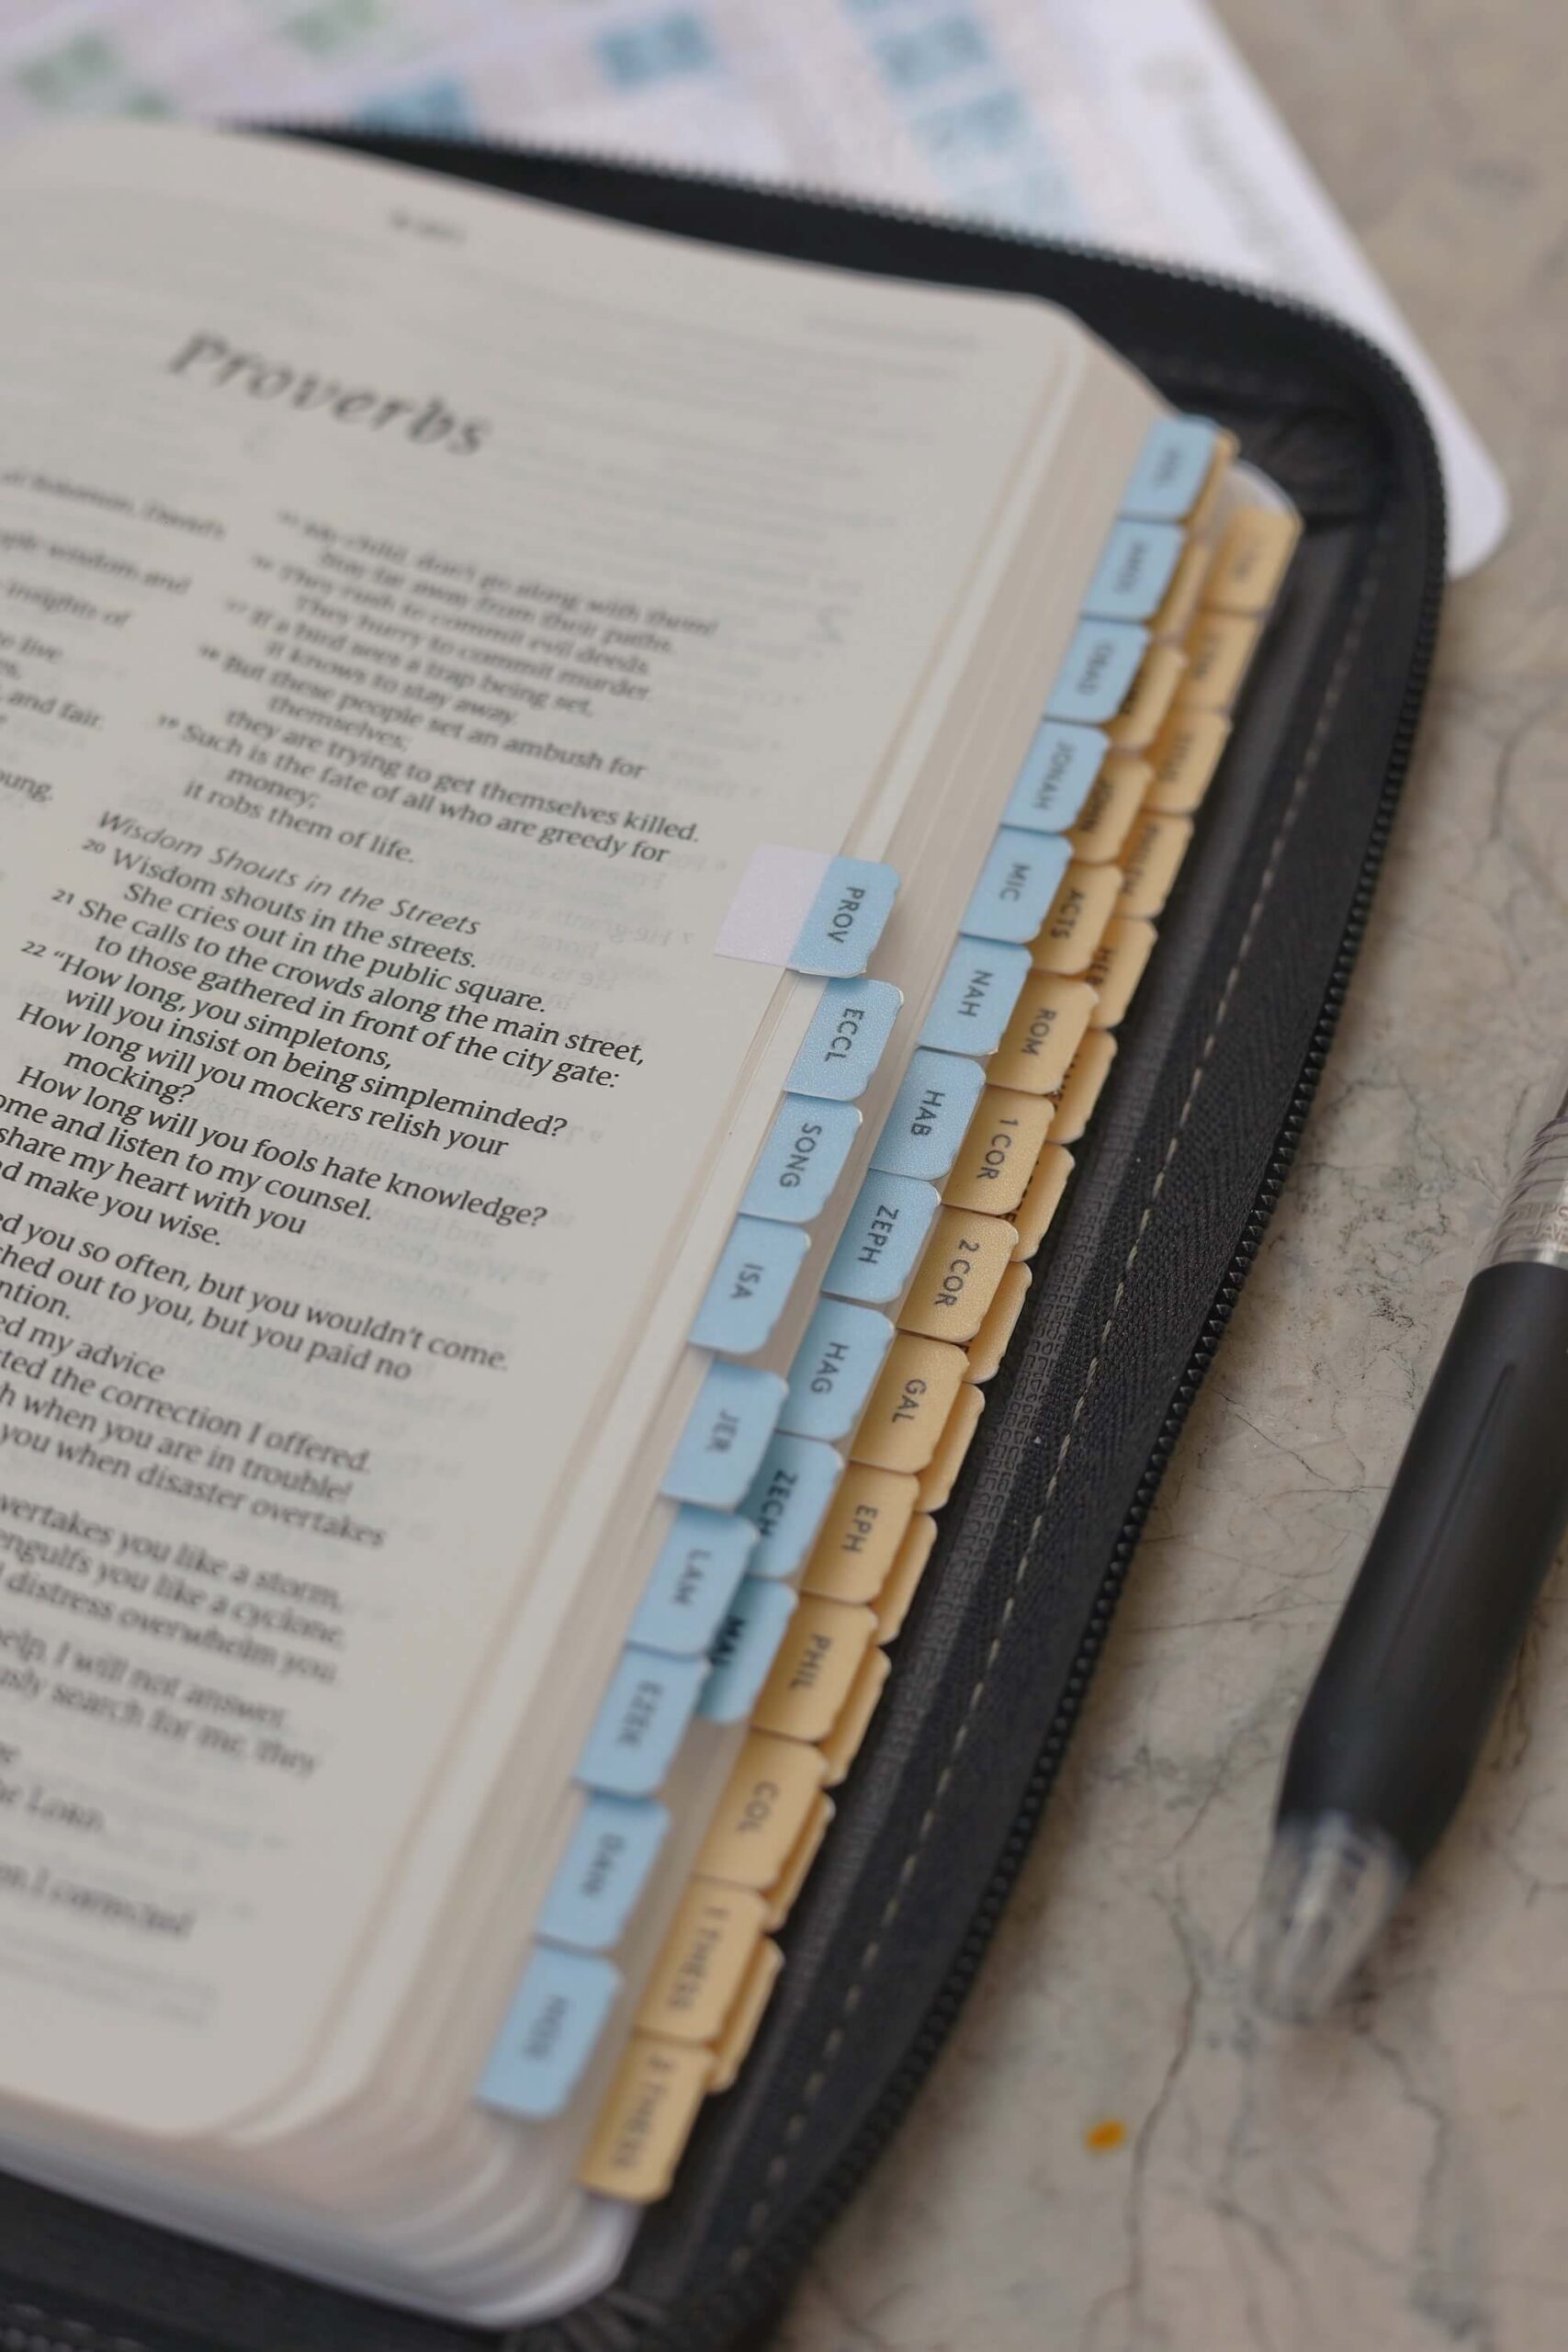 Proverbs
of Solomon, David's
wisdom and
insights of
to live
and fair.
oung,
My child, don't go along with them!
Stay far away from their paths.
16 They rush to commit evil deeds.
They hurry to commit murder.
17 If a bird sees a trap being set,
it knows to stay away.
18 But these people set an ambush for
themselves;
they are trying to get themselves killed.
19 Such is the fate of all who are greedy for
money;
it robs them of life.
Wisdom Shouts in the Streets
20 Wisdom shouts in the streets.
She cries out in the public square.
21 She calls to the crowds along the main street,
to those gathered in front of the city gate:
22 “How long, you simpletons,
will you insist on being simpleminded?
How long will you mockers relish your
mocking?
How long will you fools hate knowledge?
ome and listen to my counsel.
share my heart with you
d make you wise.
ed you so often, but you wouldn't come.
ched out to you, but you paid no
ntion.
ed my advice
cted the correction I offered.
h when you are in trouble!
you when disaster overtakes
vertakes you like a storm,
engulfs you like a cyclone,
distress overwhelm you.
help, I will not answer.
usly search for me, they
he LORD.
on I corrected
PROV
ECCL
SONG
ISA
JER
LAM
EZEK
DAN
HOS
AMOS
OBAD
JONAH
MIC
NAH
HAB
ZEPH
HAG
ZECH
MAL
JOHN
ACTS
ROM
1 COR
2 COR
GAL
EPH
PHIL
COL
1 THESS
2 THESS
TITUS
PHLM
HEB